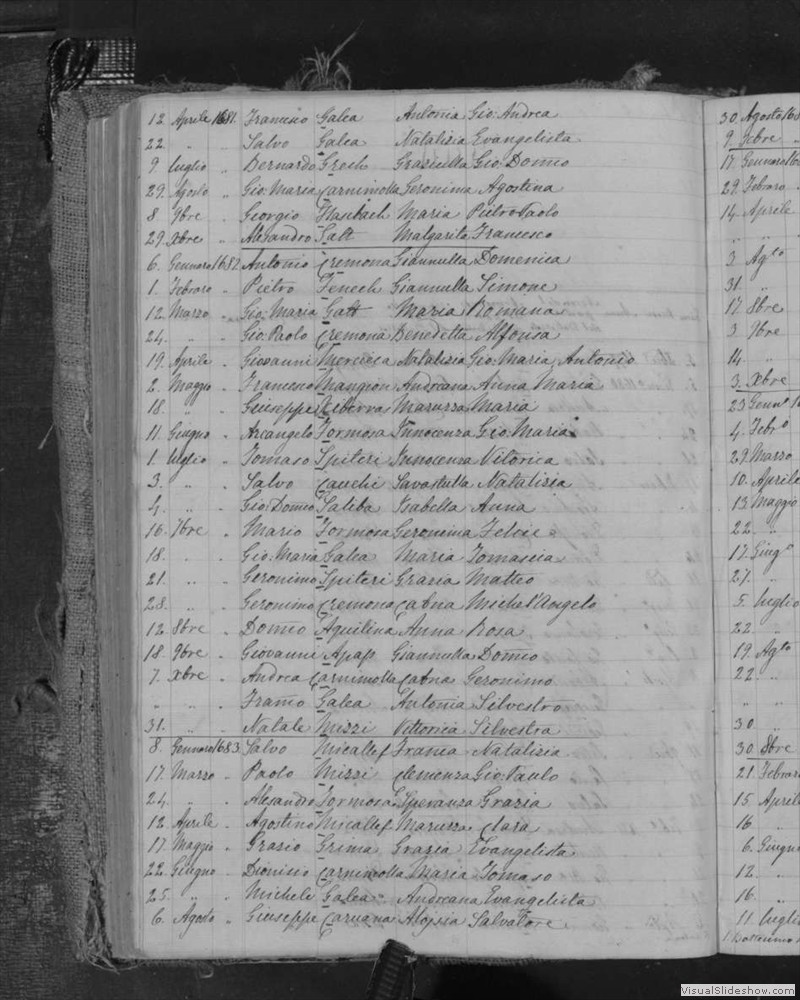 12. Aprile 1681. Francisco Galea Antonia Gio: Andrea
22. " " Salvo Galea Natalizia Evangelista
9. Luglio " Bernardo Grech Graziulla Gio: Domco
29. Agosto " Gio: Maria Carnimolla Geronima Agostina
8. 9bre " Giorgio Hasciach Maria Pietro Paolo
29. Xbre " Alesandro Satt Malgarita Francesco
6. Gennaro 1682. Antonio Cremona Giannulla Domenica
1. Febraro " Pietro Fenech Giannulla Simone
12. Marzo " Gio: Maria Gatt Maria Romana
24. " " Gio: Paolo Cremona Benedetta Alfonsa
19. Aprile " Giovanni Mercieca Natalizia Gio: Maria Antonio
2. Maggio " Francesco Mangion Andreana Anna Maria
18. " " Giuseppe Maruzza Maria
11. Giugno " Arcangelo Formosa Innocenza Gio: Maria
1. Luglio " Tomaso Spiteri Innocenza Vitorica
3. " " Salvo Cauchi Natalizia
4. " " Gio: Domco Saliba Isabella Anna
16. 7bre " Mario Formosa Geronima Felice
18. " " Gio: Maria Galea Maria Tomascia
21. " " Geronimo Spiteri Grazia Matteo
28. " " Geronimo Cremona Catna Michel'Angelo
12. 8bre " Domco Aquilina Anna Rosa
18. 9bre " Giovanni Apap Giannulla Domco
7. Xbre " Andrea Carnimolla Catna Geronimo
" " " Franco Galea Antonia Silvestro
31. " " Natale Mizzi Vittorica Silvestra
8. Gennaro 1683. Salvo Micallef Franca Natalizia
17. Marzo " Paolo Mizzi Clemenza Gio: Paulo
24. " " Alesandro Formosa Speranza Grazia
12. Aprile " Agostino Micallef Maruzza Clara
17. Maggio " Grasio Grima Grazia Evangelista
22. Giugno " Dionisio Carnimolla Maria Tomaso
25. " " Michele Galea Andreana Evangelista
6. Agosto " Giuseppe Caruana Aloisia Salvatore
30. Agosto 168
9. 9bre "
17. Gennaro 16
29. Febraro "
14. Aprile "
" "
3 Agto
31. "
17 8bre
3 9bre
14. "
3. Xbre
23 Gennro 16
4. Febro
29. Marzo
10. Aprile
13. Maggio
22. "
17. Giugo
27. "
5. Luglio
22 "
19. Agto
22. "
" "
30. "
30 8bre
21. Febraro
15. Aprile
16. "
6. Giugno
12. "
16. "
11. Luglio
VisualSlideshow.com